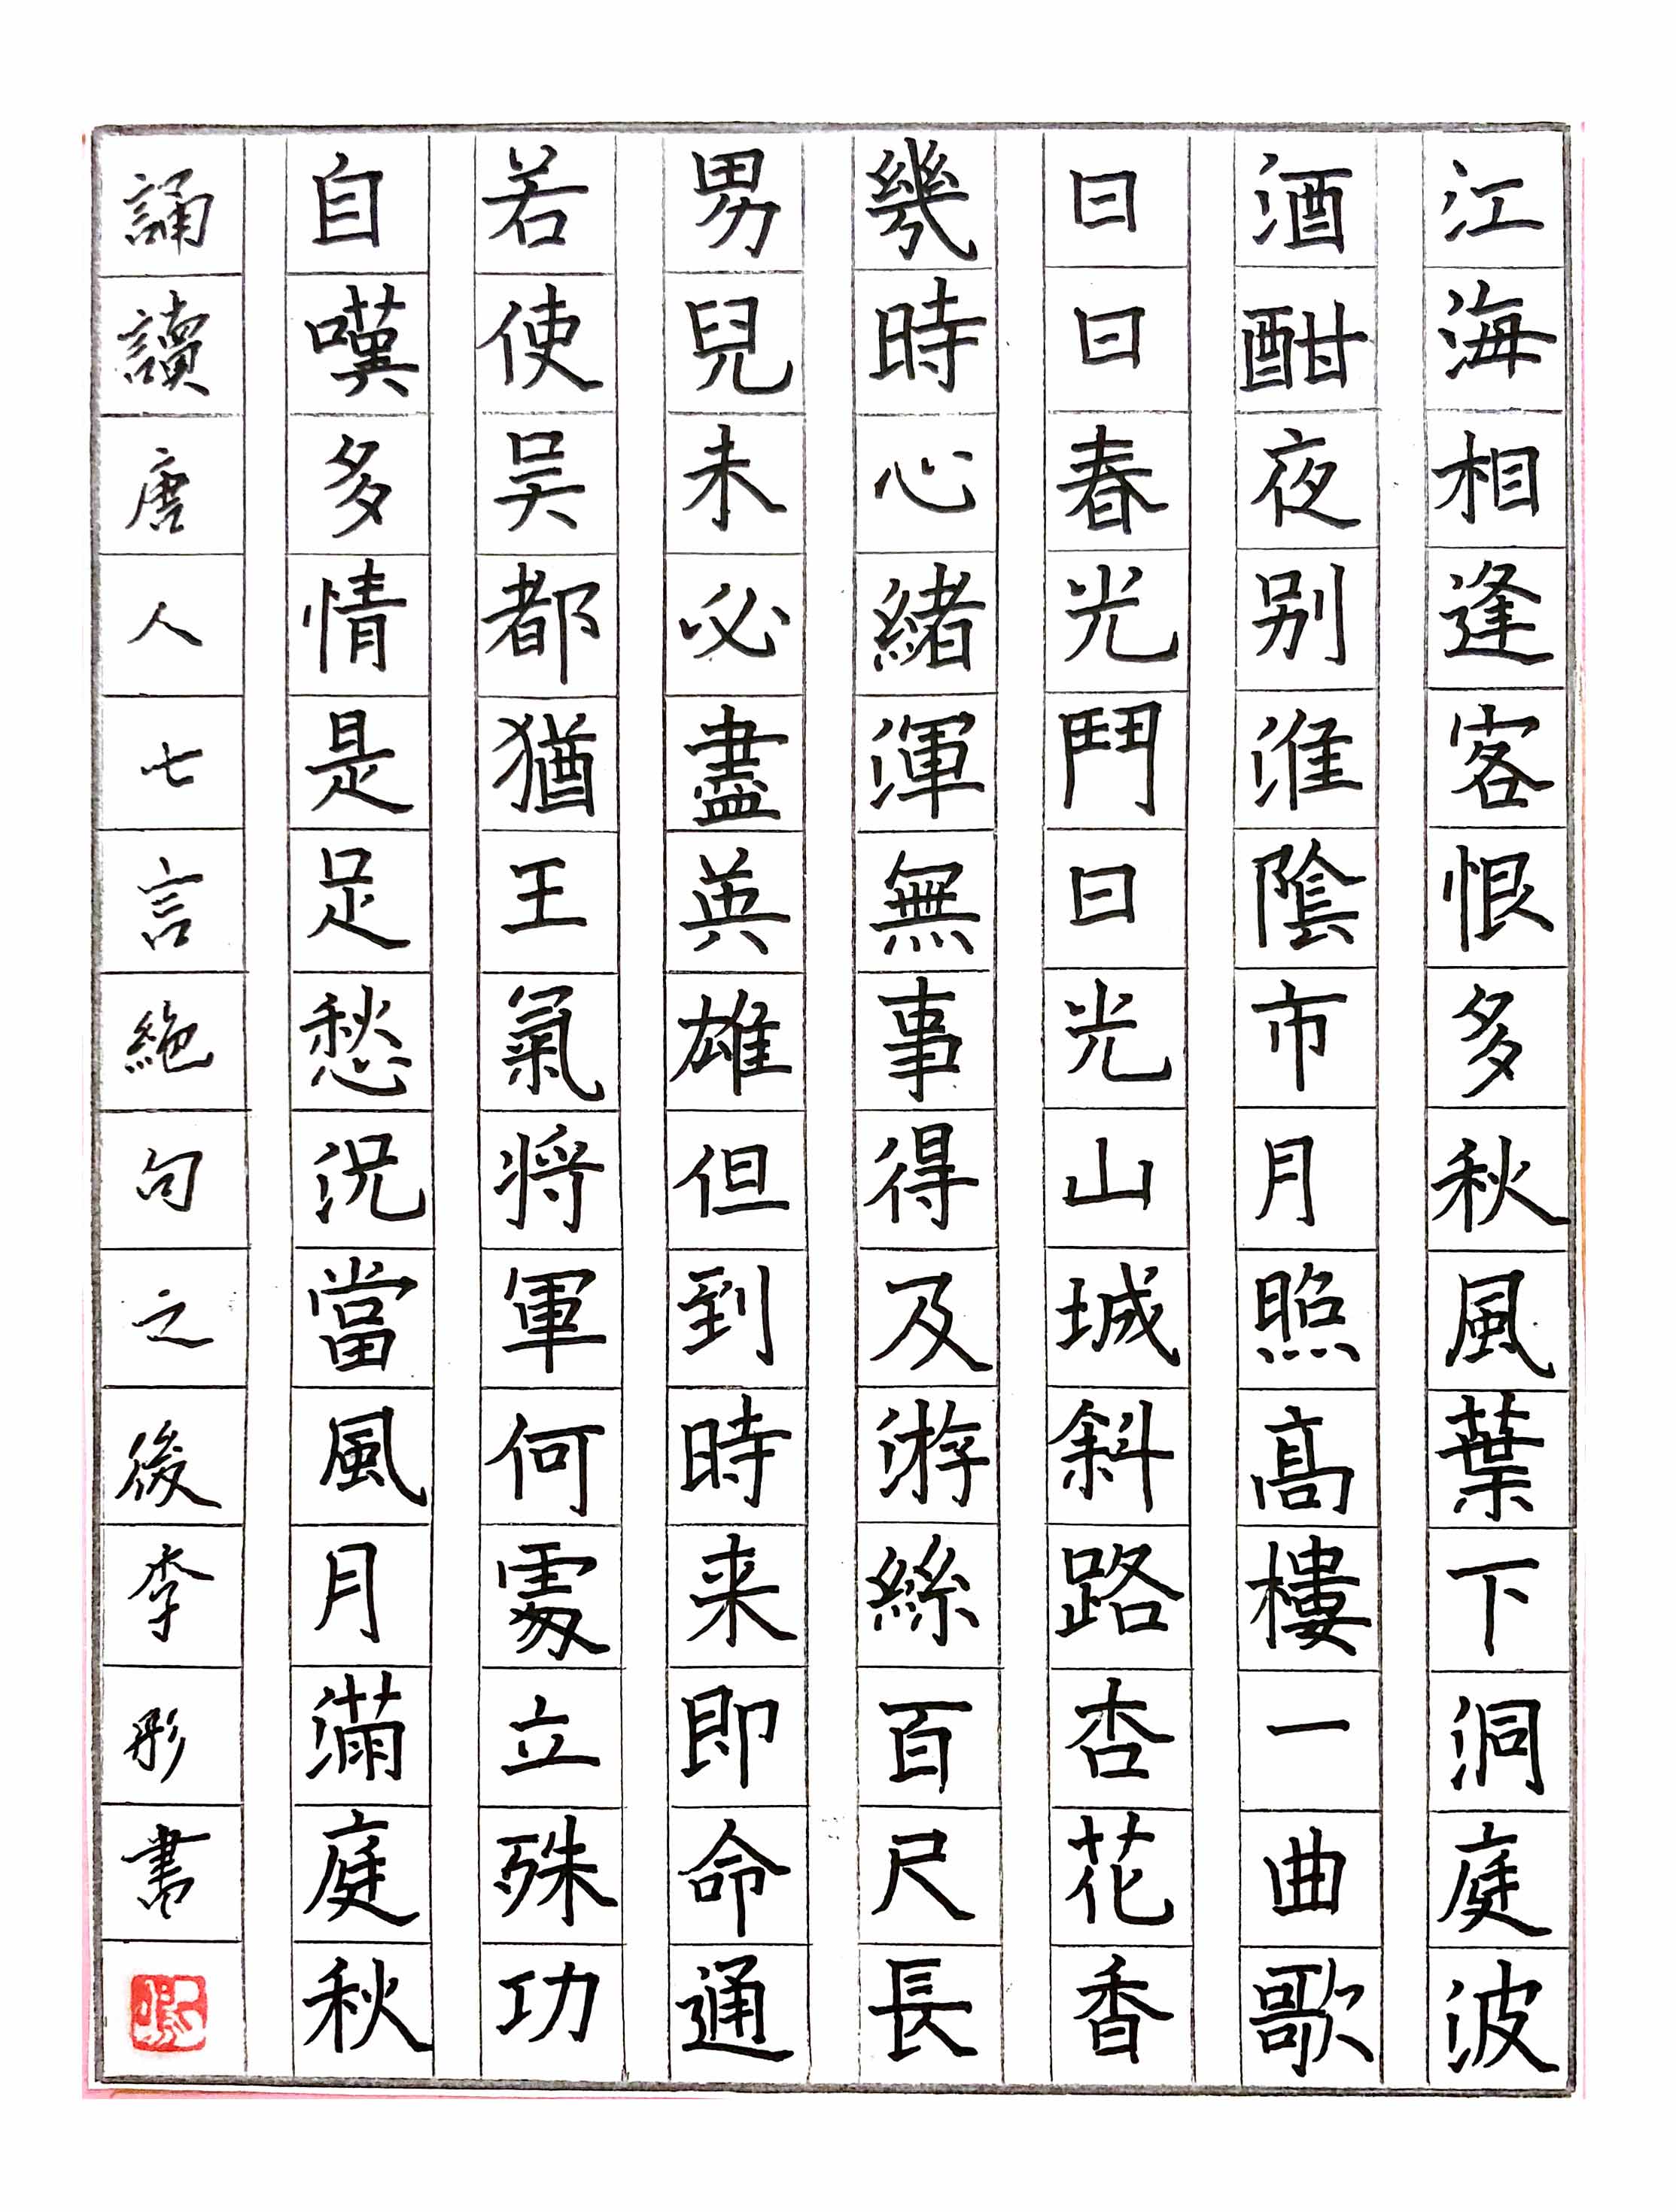 江海相逢客恨多秋風葉下洞庭波
酒酣夜别淮陰市月照高樓一曲歌
日日春光鬥日光山城斜路杏花香
幾時心緒渾無事得及游絲百尺長
男兒未必盡英雄但到時来即命通
若使吴都猶王氣将軍何處立殊功
自嘆多情是足愁況當風月滿庭秋
誦讀唐人七言絶句之後李彤書